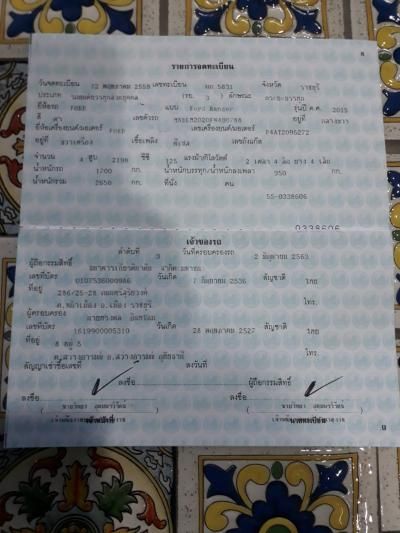 8
รายการจดทะเบียน
วันจดทะเบียน 12 พฤษภาคม 2558 เลขทะเบียน 5831 จังหวัด ราชบุรี
ประเภท (รย. 3 ) ลักษณะ กระบะบรรทุก
ยี่ห้อรถ FORD แบบ Ford Ranger รุ่นปี ค.ศ. 2015
สี ดำ เลขตัวรถ อยู่ที่
ยี่ห้อเครื่องยนต์/มอเตอร์ FORD เลขเครื่องยนต์/มอเตอร์ P4AT2095272
อยู่ที่ ขวาเครื่อง เชื้อเพลิง ดีเซล เลขถังแก๊ส
จำนวน 4 สูบ 2198 ซีซี 125 แรงม้า/กิโลวัตต์ 2 เพลา 4 ล้อ ยาง 4 เส้น
น้ำหนักรถ 1700 กก. น้ำหนักบรรทุก/น้ำหนักลงเพลา 950 กก.
น้ำหนักรวม 2650 กก. ที่นั่ง คน
55-0338606
0338606
เจ้าของรถ
ลำดับที่ 3 วันที่ครอบครองรถ 2 2563
ผู้ถือกรรมสิทธิ์ ธนาคารเกียรตินาคิน จำกัด
เลขที่บัตร 0107536000986 วันเกิด 7 กันยายน 2536 สัญชาติ ไทย
ที่อยู่ 286/25-28
ต.หน้าเมือง อ.เมือง ราชบุรี โทร.
ผู้ครอบครอง
เลขที่บัตร 1619900005310 วันเกิด 28 พฤษภาคม 2527 สัญชาติ ไทย
ที่อยู่ 8 หมู่ 5
ต.สว่างอารมณ์ อ.สว่างอารมณ์ อุทัยธานี โทร.
สัญญาเช่าซื้อเลขที่ ลงวันที่
ลงชื่อ ผู้ถือกรรมสิทธิ์
ลงชื่อ ลงชื่อ
เจ้าหน้าที่ นายทะเบียน